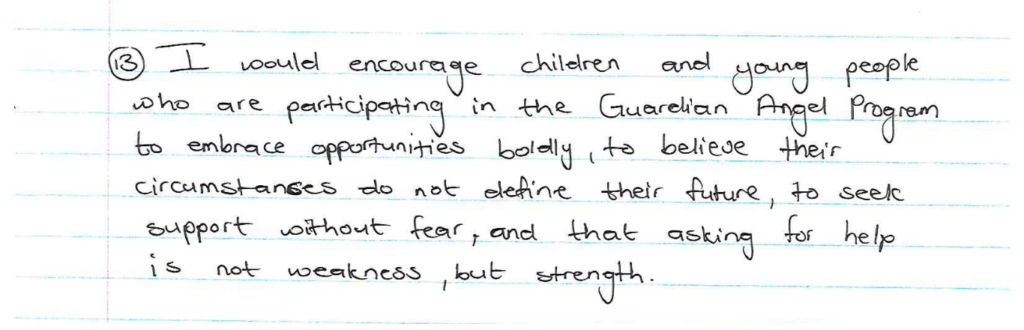 13 I would encourage children and young people
who are participating in the Guardian Angel Program
to embrace opportunities boldly, to believe their
circumstances do not define their future, to seek
support without fear, and that asking for help
is not weakness, but strength.